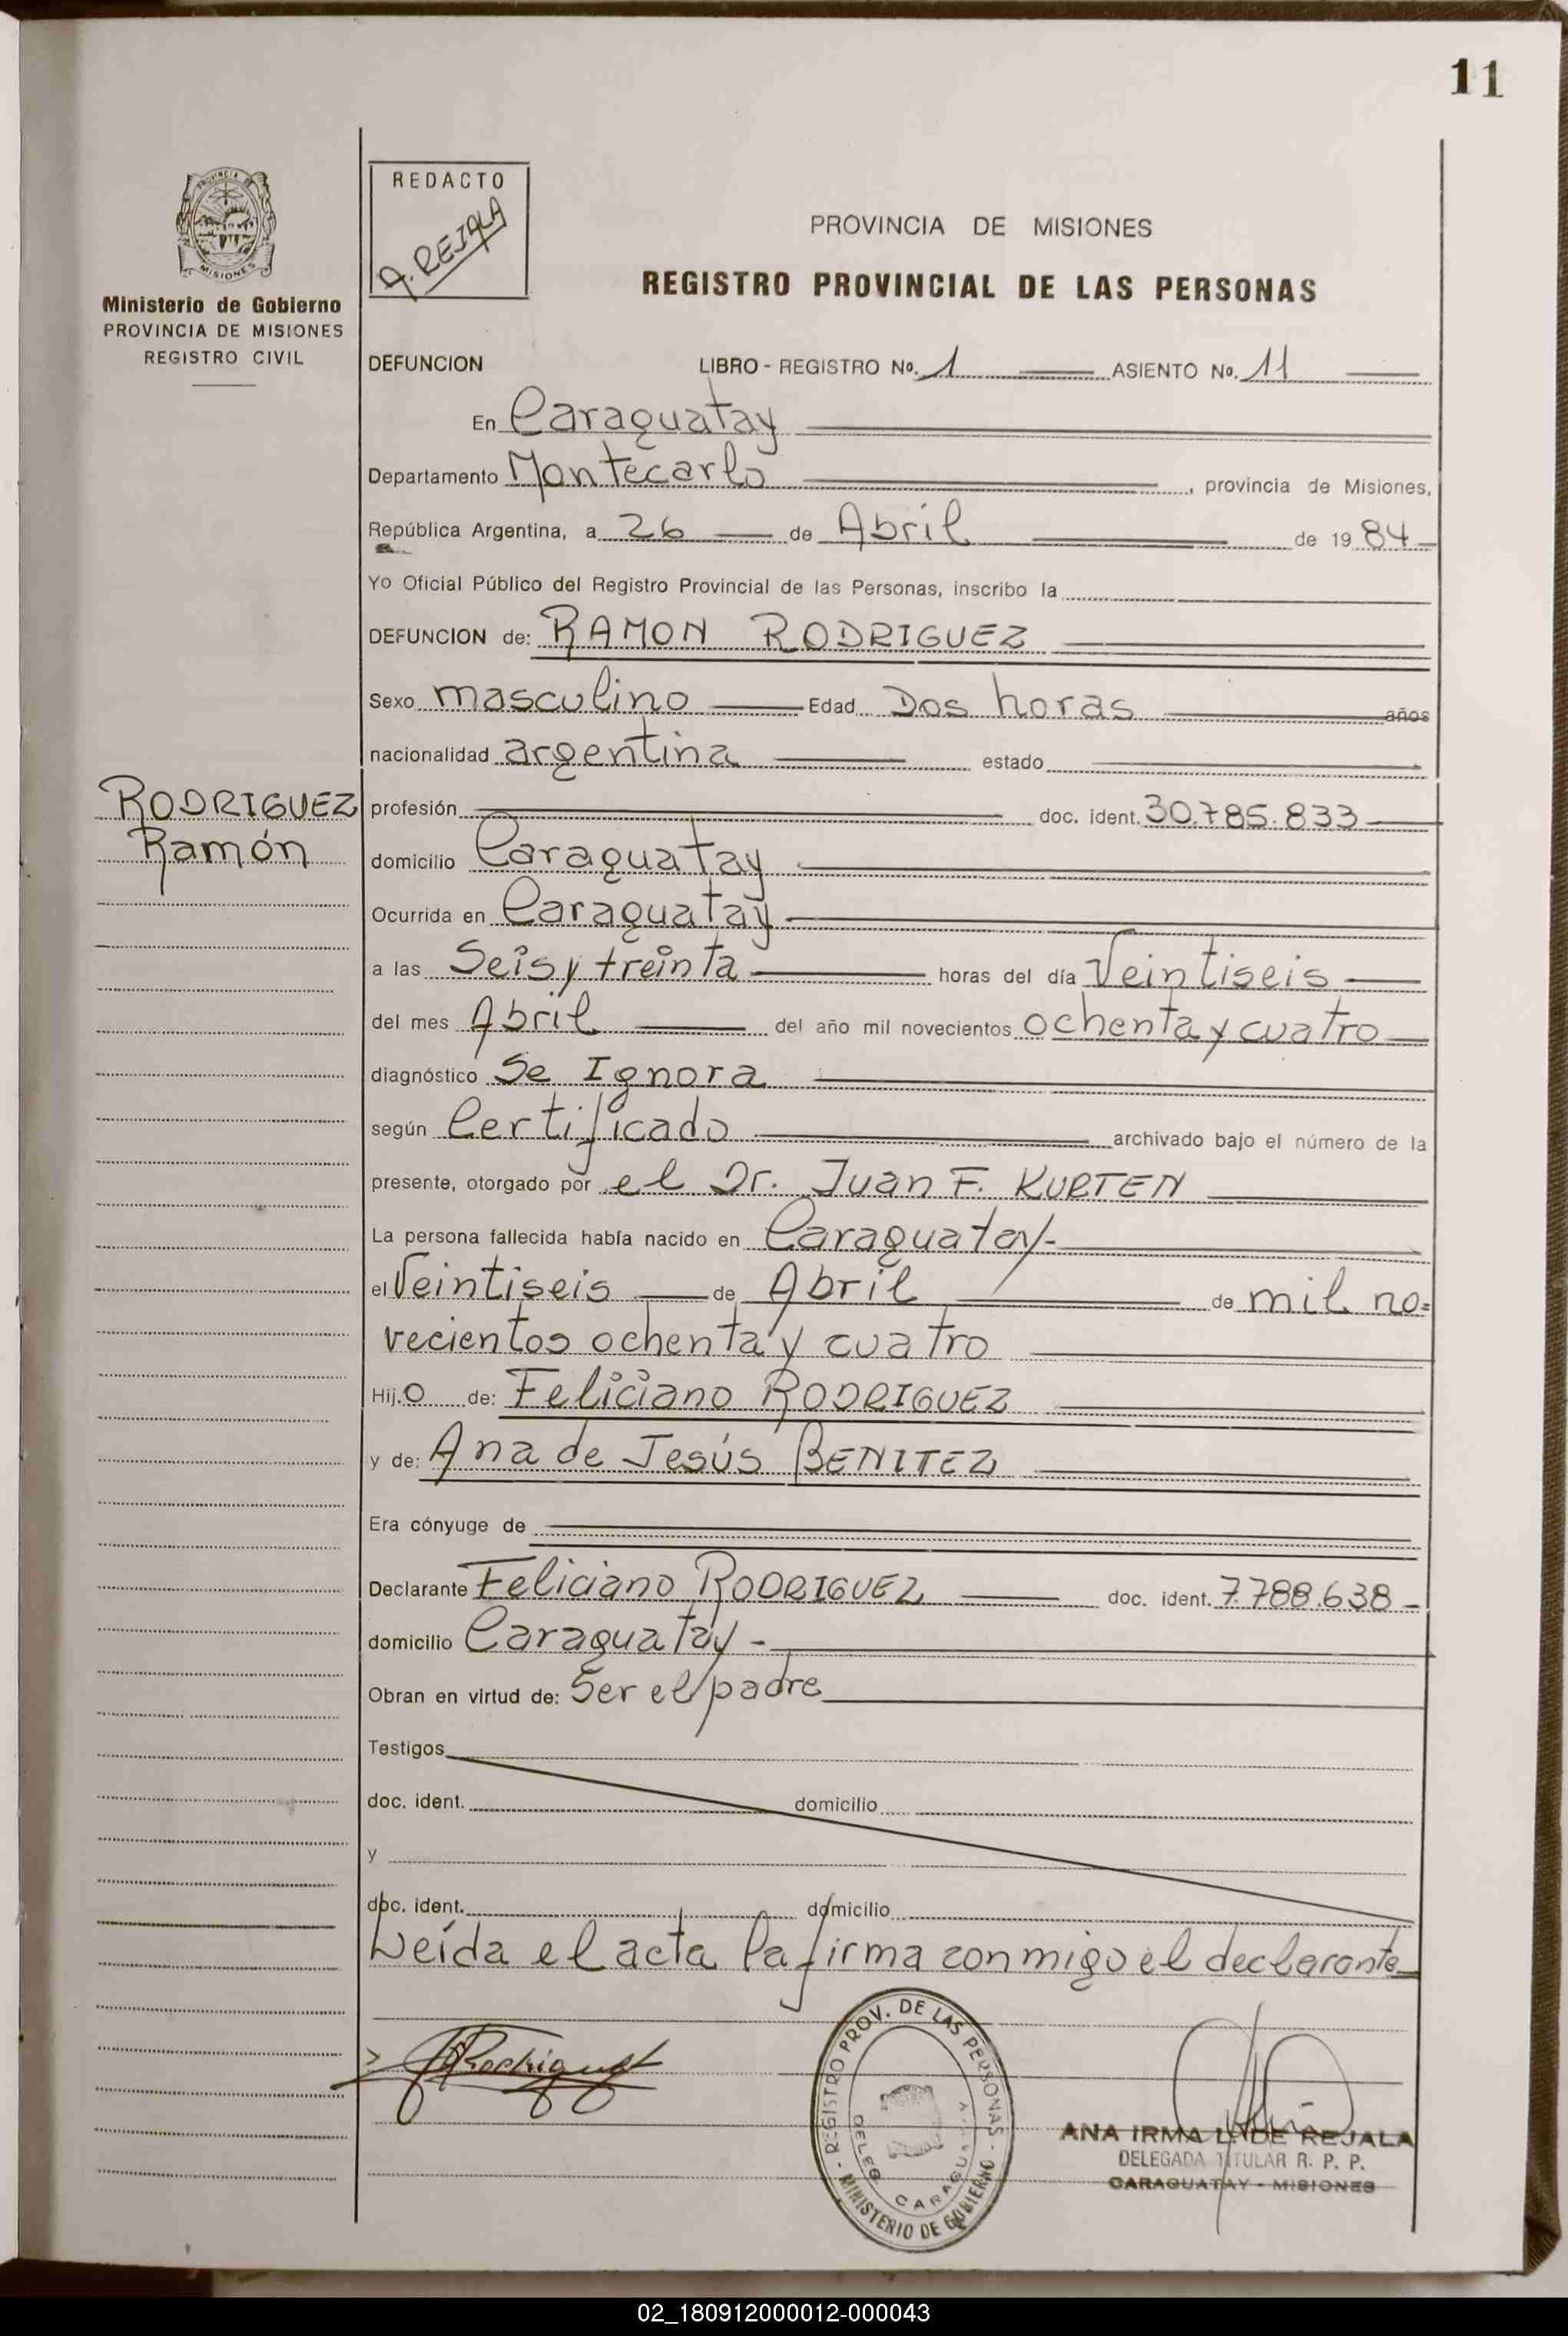 11
PROVINCIA DE
MISIONES
Ministerio de Gobierno
PROVINCIA DE MISIONES
REGISTRO CIVIL
REDACTO
A. REJALA
PROVINCIA DE MISIONES
REGISTRO PROVINCIAL DE LAS PERSONAS
DEFUNCION LIBRO - REGISTRO No. 1 ASIENTO No. 11
En Caraguatay
Departamento Montecarlo, provincia de Misiones,
República Argentina, a 26 de Abril de 1984
Yo Oficial Público del Registro Provincial de las Personas, inscribo la
DEFUNCION de: RAMON RODRIGUEZ
Sexo masculino Edad Dos horas años
nacionalidad argentina estado
RODRIGUEZ
Ramón
profesión doc. ident. 30.785.833
domicilio Caraguatay
Ocurrida en Caraguatay
a las Seis y treinta horas del día Veintiseis
del mes Abril del año mil novecientos ochenta y cuatro
diagnóstico Se Ignora
según Certificado archivado bajo el número de la
presente, otorgado por el Dr. Juan F. KURTEN
La persona fallecida había nacido en Caraguatay-
el Veintiseis de Abril de mil no=
vecientos ochenta y cuatro
Hijo de: Feliciano RODRIGUEZ
y de: Ana de Jesús BENITEZ
Era cónyuge de
Declarante Feliciano RODRIGUEZ doc. ident. 7.788.638
domicilio Caraguatay -
Obran en virtud de: Ser el padre
Testigos
doc. ident. domicilio
y
doc. ident. domicilio
Leída el acta la firma conmigo el declarante
Rodriguez
REGISTRO PROV. DE LAS PERSONAS - MINISTERIO DE GOBIERNO -
DELEG. CARAGUATAY
ANA IRMA L. DE REJALA
DELEGADA TITULAR R. P. P.
CARAGUATAY - MISIONES
02_180912000012-000043